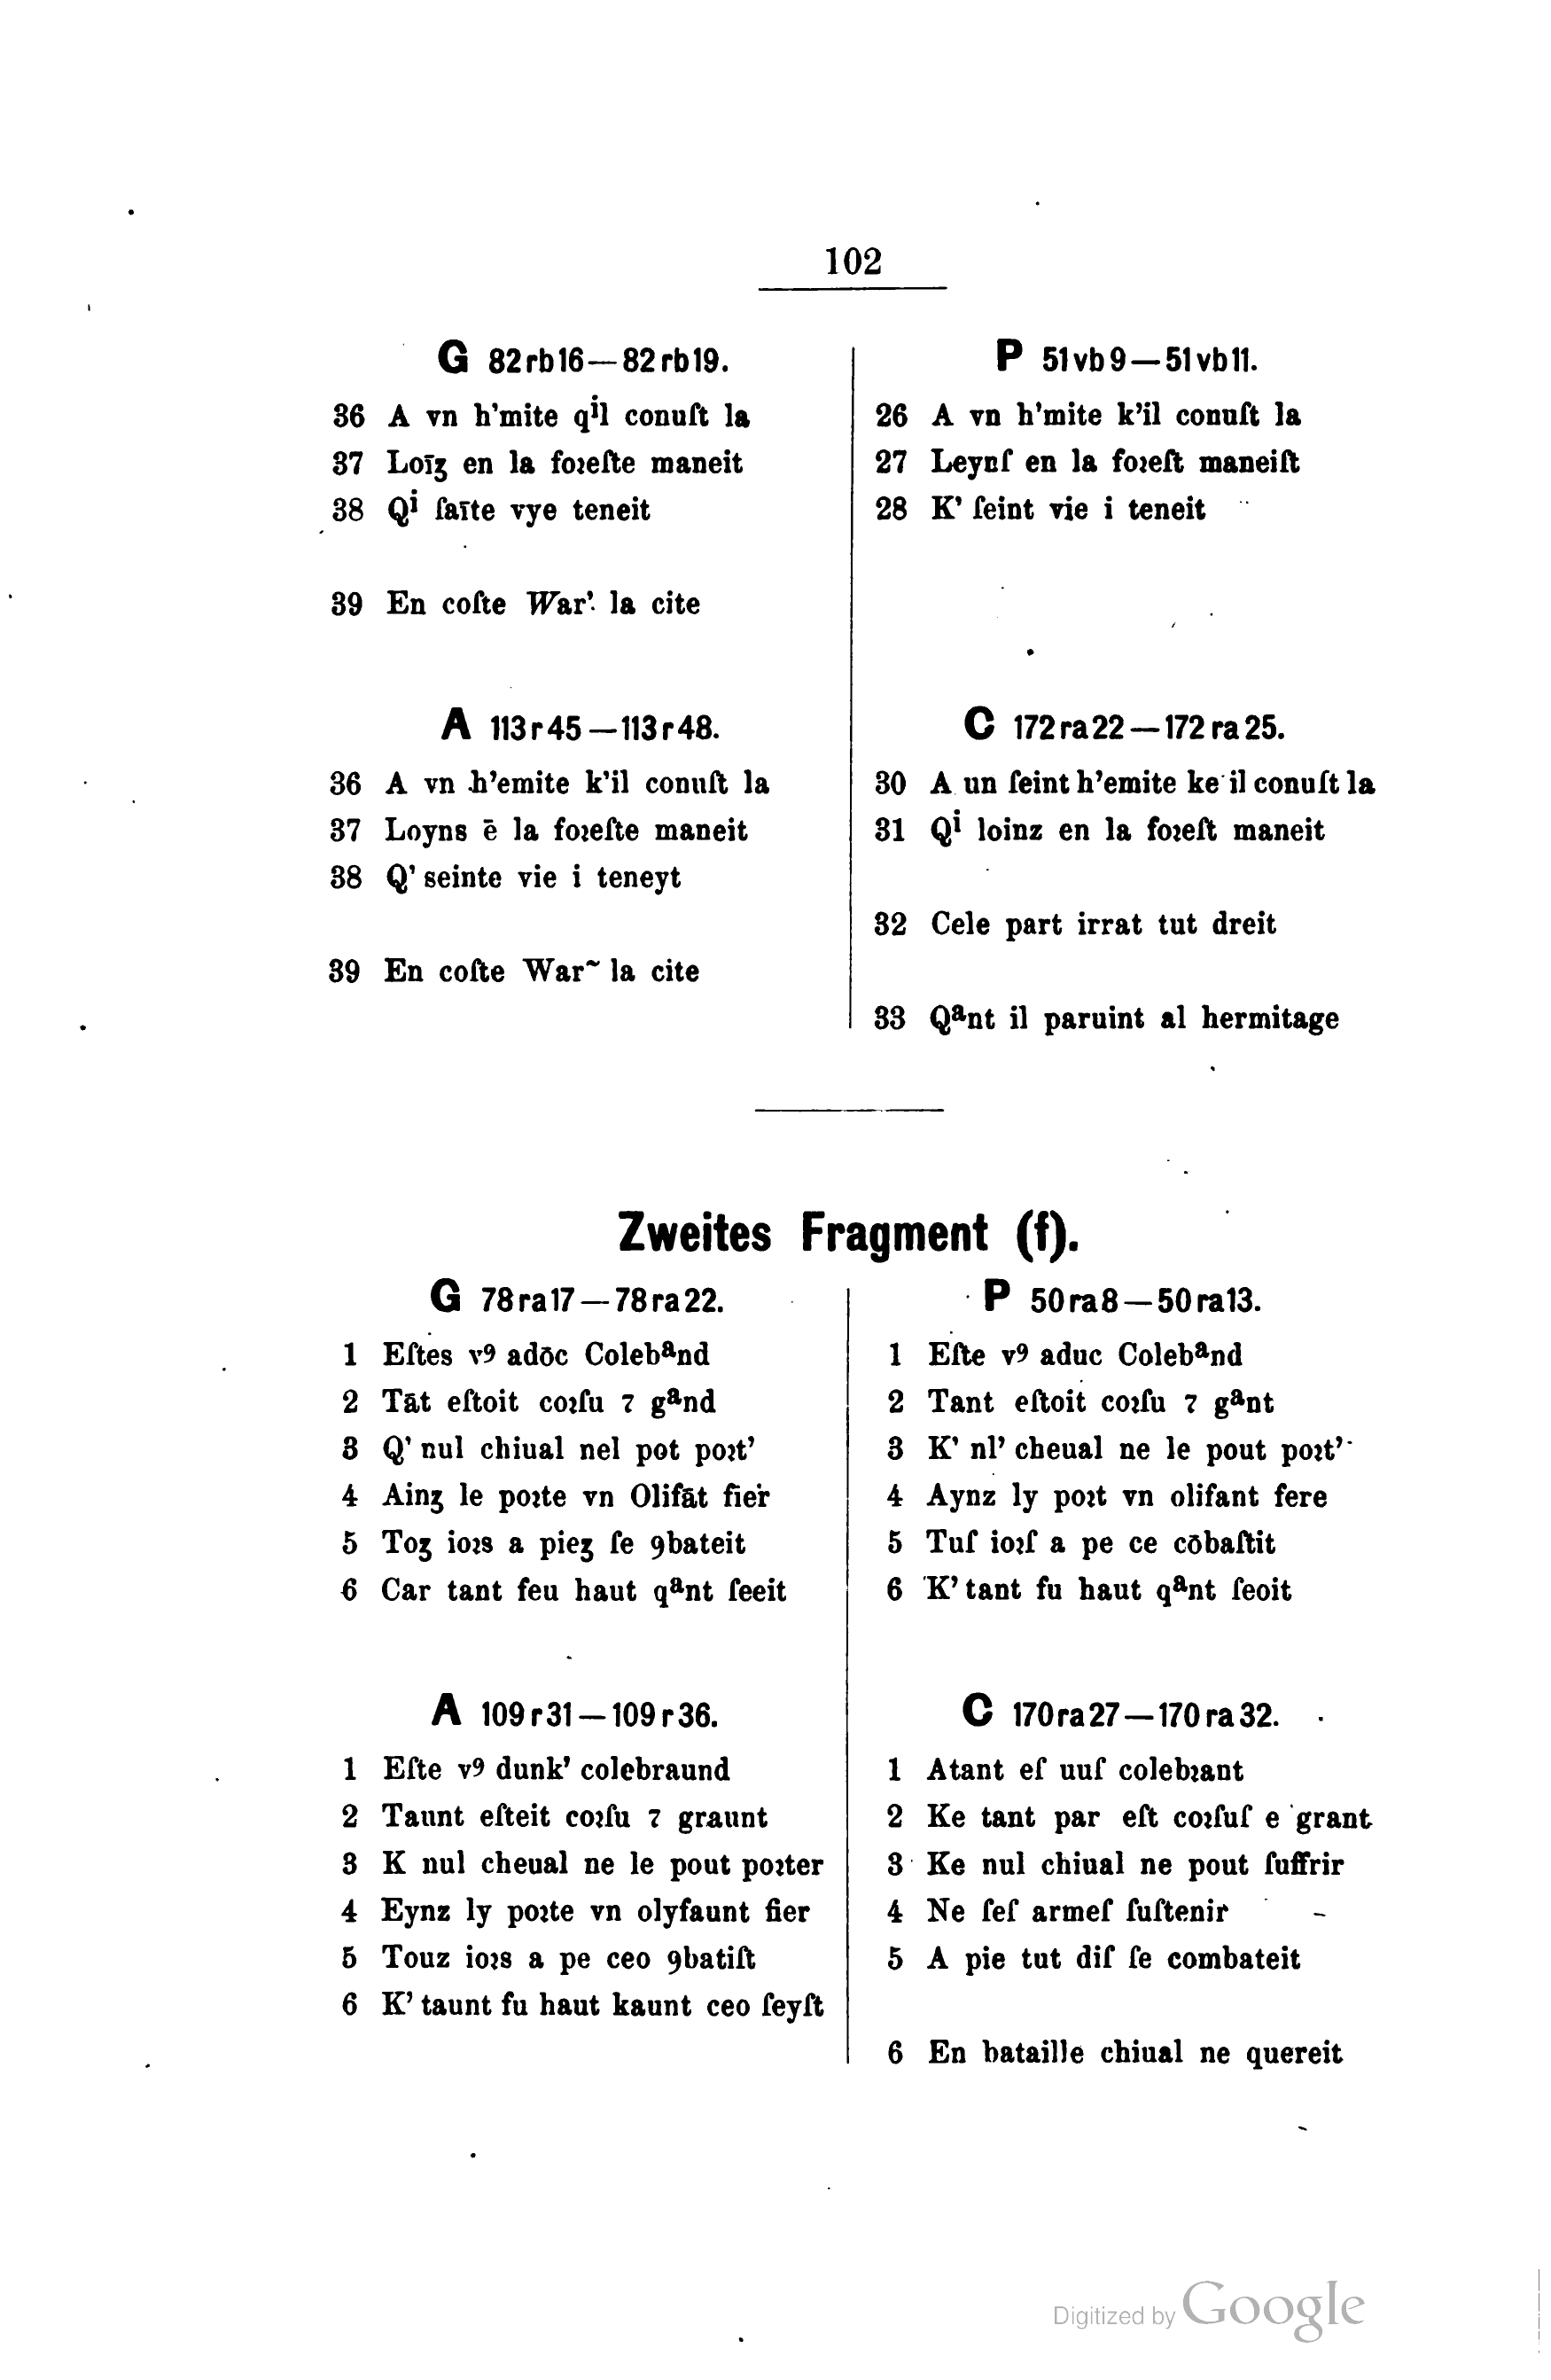 102
G 82rb16—82rb19.
36 A vn h’mite qⁱl conuſt la
37 Loīʒ en la foꝛeſte maneit
38 Qⁱ ſaīte vye teneit
39 En coſte War’. la cite
P 51vb9—51vb11.
26 A vn h’mite k’il conuſt la
27 Leynſ en la foꝛeſt maneiſt
28 K’ ſeint vie i teneit
A 113r45—113r48.
36 A vn h’emite k’il conuſt la
37 Loyns ē la foꝛeſte maneit
38 Q’ seinte vie i teneyt
39 En coſte War~ la cite
C 172ra22—172ra25.
30 A un ſeint h’emite ke il conuſt la
31 Qⁱ loinz en la foꝛeſt maneit
32 Cele part irrat tut dreit
33 Qᵃnt il paruint al hermitage
Zweites Fragment (f).
G 78ra17—78ra22.
1 Eſtes vꝰ adōc Colebᵃnd
2 Tāt eſtoit coꝛſu ⁊ gᵃnd
3 Q’ nul chiual nel pot poꝛt’
4 Ainʒ le poꝛte vn Olifāt fier
5 Toʒ ioꝛs a pieʒ ſe ꝯbateit
6 Car tant feu haut qᵃnt ſeeit
P 50ra8—50ra13.
1 Eſte vꝰ aduc Colebᵃnd
2 Tant eſtoit coꝛſu ⁊ gᵃnt
3 K’ nl’ cheual ne le pout poꝛt’
4 Aynz ly poꝛt vn olifant fere
5 Tuſ ioꝛſ a pe ce cōbaſtit
6 K’ tant fu haut qᵃnt ſeoit
A 109r31—109r36.
1 Eſte vꝰ dunk’ colebraund
2 Taunt eſteit coꝛſu ⁊ graunt
3 K nul cheual ne le pout poꝛter
4 Eynz ly poꝛte vn olyfaunt fier
5 Touz ioꝛs a pe ceo ꝯbatiſt
6 K’ taunt fu haut kaunt ceo ſeyſt
C 170ra27—170ra32.
1 Atant eſ uuſ colebꝛant
2 Ke tant par eſt coꝛſuſ e grant
3 Ke nul chiual ne pout ſuffrir
4 Ne ſeſ armeſ ſuſtenir
5 A pie tut diſ ſe combateit
6 En bataille chiual ne quereit
Digitized by Google